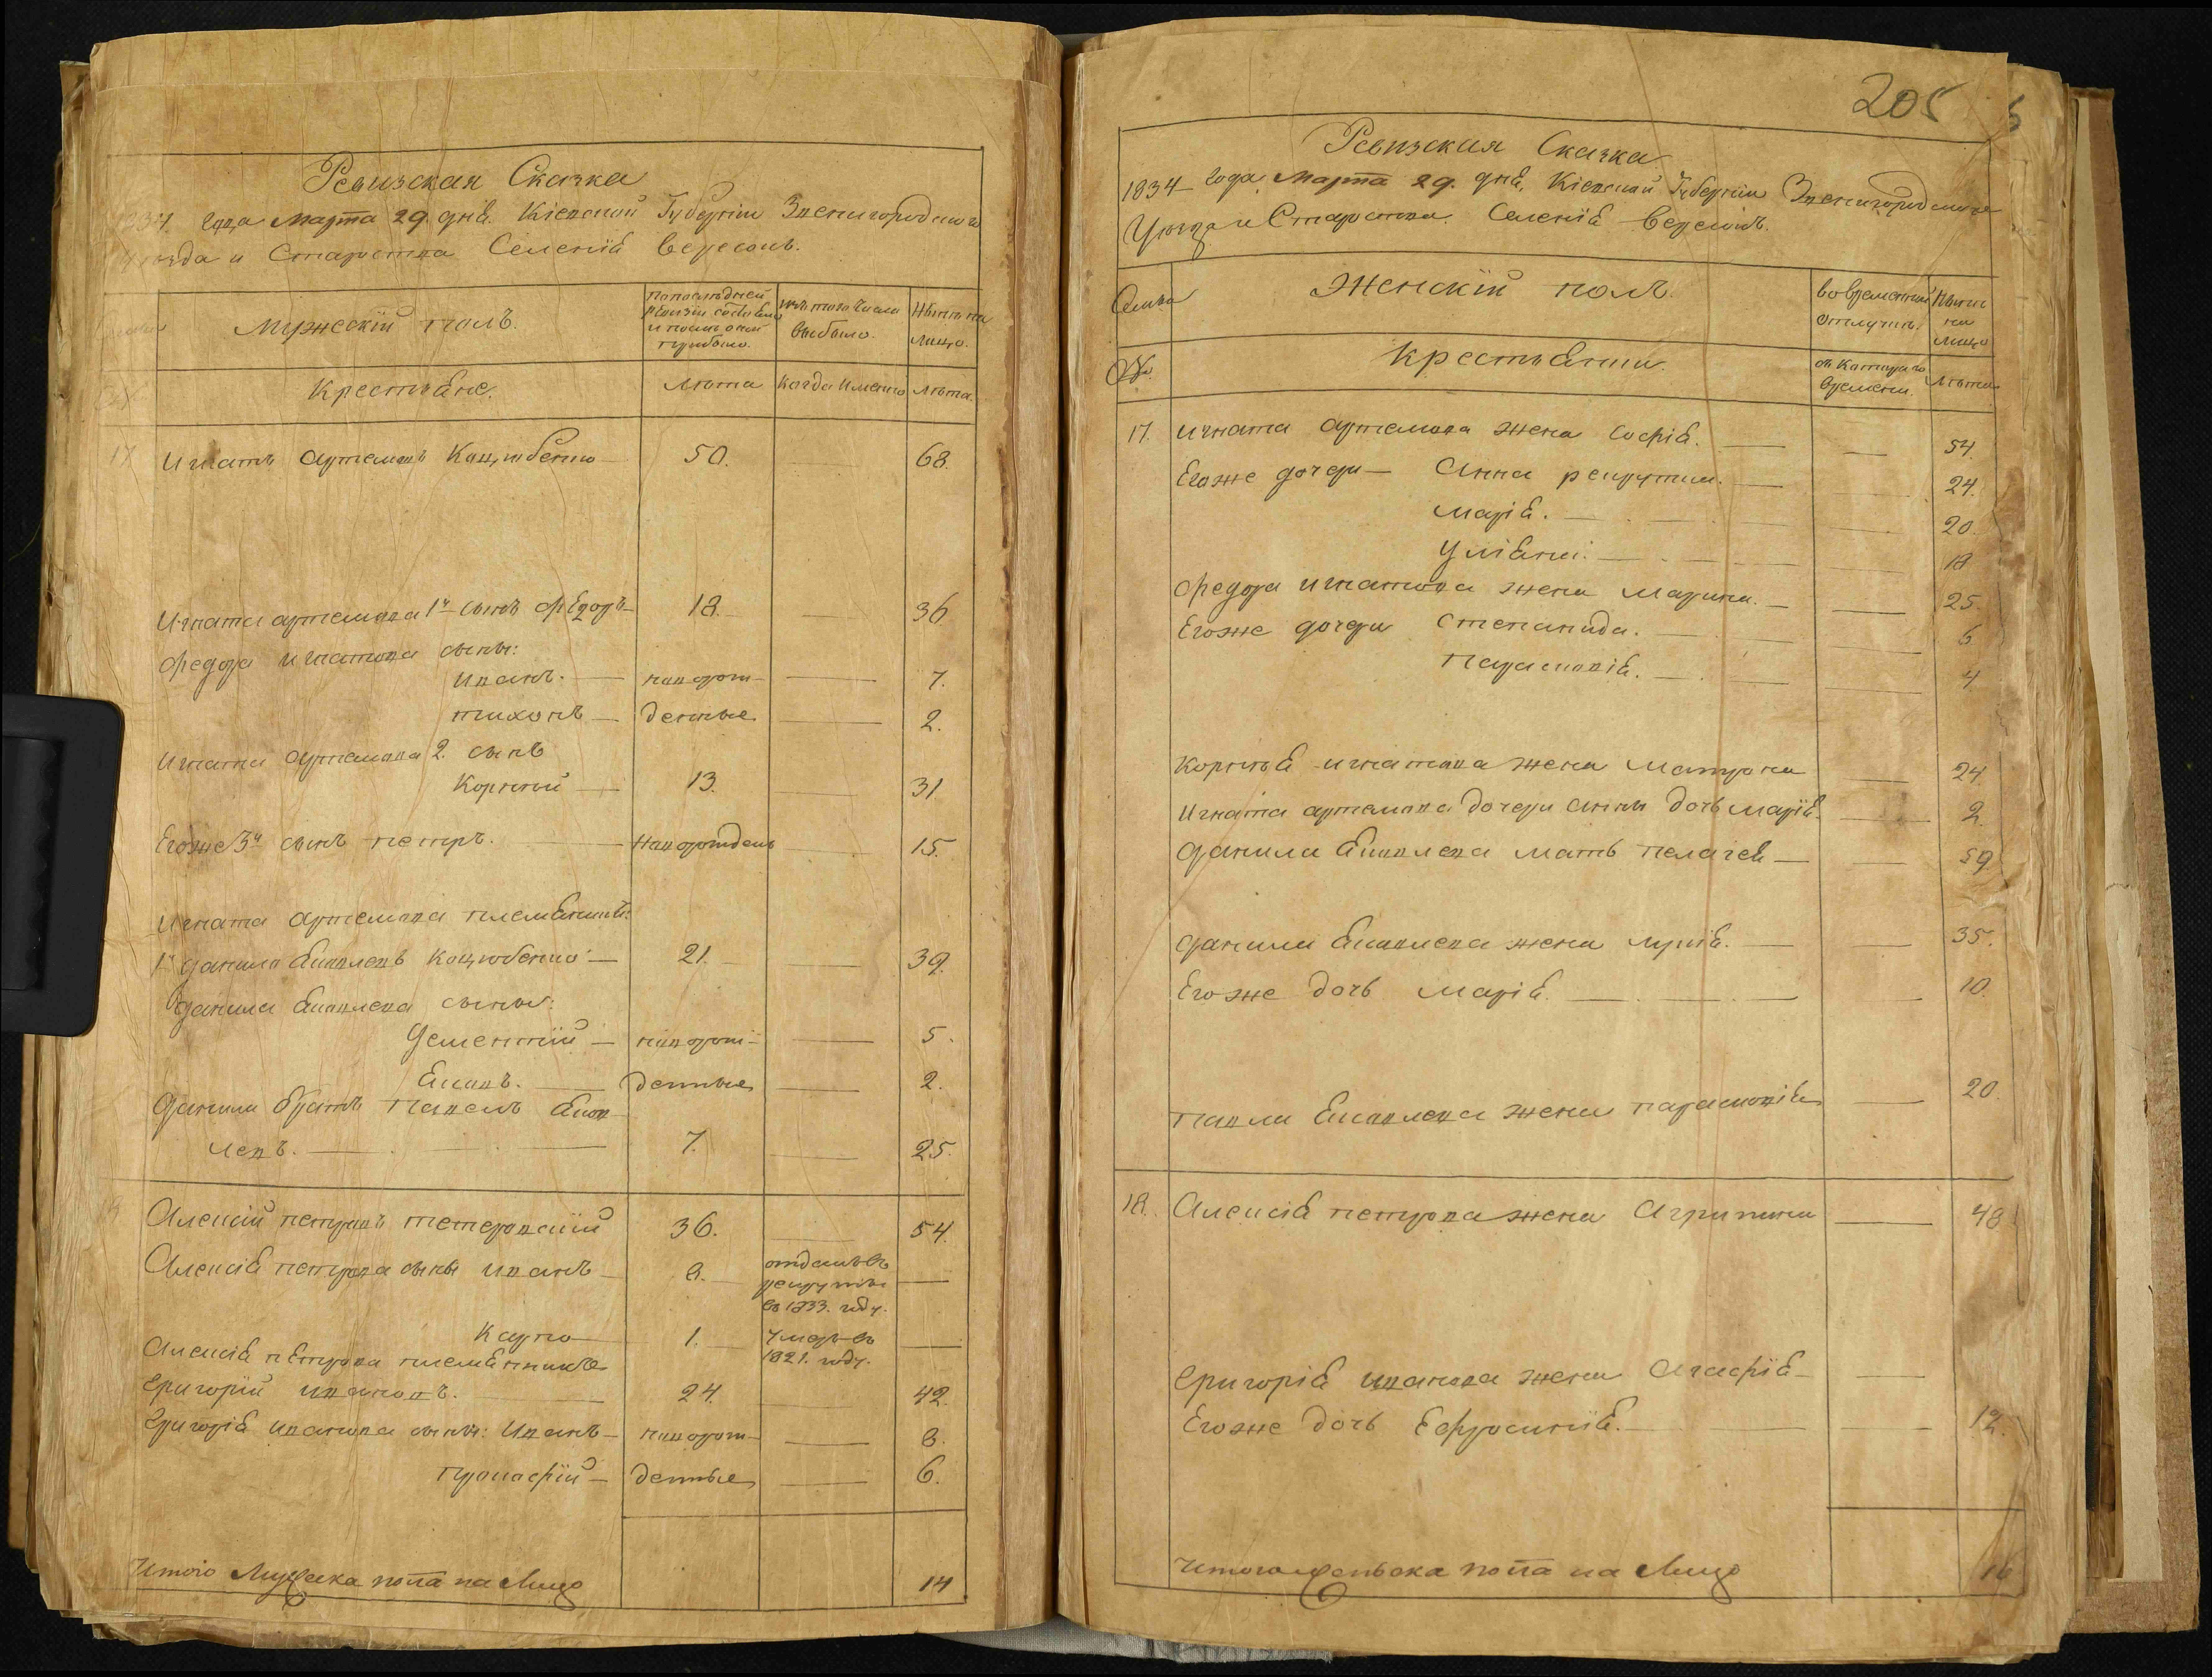 Ревизская Сказка
1834 года марта 29 днѣ. Кіевской Губерніи Звенигородскаго
уѣзда и Староства Селенія вересокъ.
мужескій полъ.
По последней ревизіи состояло и послѣ оной прибыло.
Изъ того числа выбыло.
Нынѣ на лицо.
Крестьяне.
лѣта
Когда именно
лѣта.
17 Игнатъ артемовъ Коцюбенко 50. 68.
Игната артемова 1й сынъ федоръ 18. 36
федора игнатова сыны:
иванъ. новорож- 7.
тихонъ денные 2.
игната артемова 2. сынъ
Корнѣй 13. 31
Егоже 3й сынъ петръ. новорожденъ 15.
игната артемова племянники:
1й данило Яковлевъ Коцюбенко 21. 39.
данила Яковлева сыны:
дементій новорож- 5.
Яковъ. денные 2.
данила братъ павелъ Яков
левъ. 7. 25.
Алексій петровъ тетеровскій 36. 54.
Алексія петрова сыны иванъ 8. отданъ въ рекруты въ 1833. году.
Карпо 1. умеръ въ 1821. году.
Алексія петрова племянникъ
григорій ивановъ. 24. 42.
григорія иванова сыны: иванъ новорож- 8.
прокофій денные 6.
Итого Мужеска пола на Лицо 14
205
Ревизская Сказка
1834 года марта 29. днѣ. Кіевской Губерніи Звенигородскаго
Уѣзда и Староства. Селенія вересокъ.
Семья
Женскій полъ.
во временной отлучкѣ.
Нынѣ на лицо
№
крестьянки
съ Котораго времени.
лѣта
17. игната артемова жена софія. 54.
Егоже дочери Анна рекрутка. 24.
марія. 20.
уліяна. 18
федора игнатова жена марина. 25.
Егоже дочери степанида. 6
парасковія. 4
корнѣя игнатова жена матрона 24
игната артемова дочери анны дочь марія. 2.
данила Яковлева мать пелагея 59
данила Яковлева жена лукія. 35.
Егоже дочь марія. 10.
павла Яковлева жена парасковія 20.
18. Алексія петрова жена Агрипина 48
григорія иванова жена Агафія
Егоже дочь Ефросинія. 12.
Итого женска пола на Лицо 16